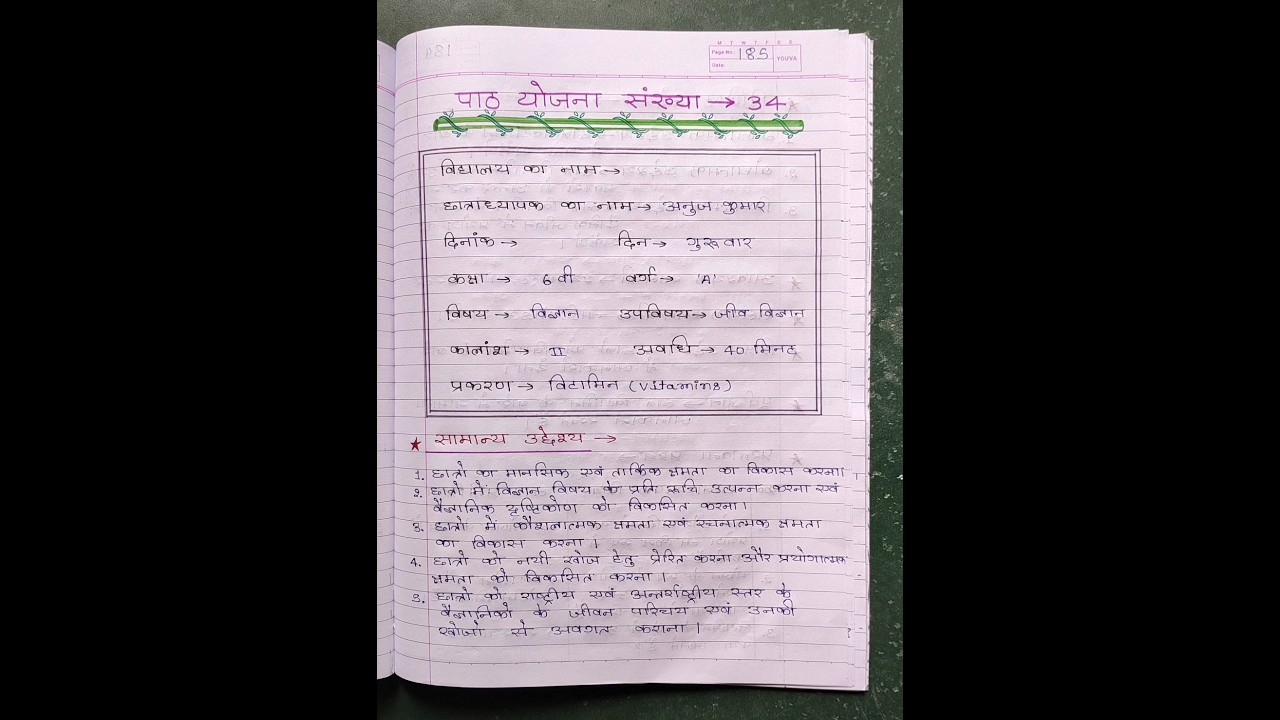 M T W T F S S
Page No.: 185
YOUVA
Date:
पाठ योजना संख्या → 34
विद्यालय का नाम →
छात्राध्यापक का नाम → अनुज कुमार
दिनांक → दिन → गुरूवार
कक्षा → 6 वी वर्ग → 'A'
विषय → विज्ञान उपविषय → जीव विज्ञान
कालांश → II अवधि → 40 मिनट
प्रकरण → विटामिन (Vitamins)
★ सामान्य उद्देश्य →
1. छात्रो का मानसिक एवं तार्किक क्षमता का विकास करना।
2. छात्रो में विज्ञान विषय के प्रति रूचि उत्पन्न करना एवं
वैज्ञानिक दृष्टिकोण को विकसित करना।
3. छात्रो में कौशलात्मक क्षमता एवं रचनात्मक क्षमता
का विकास करना।
4. छात्रो को नयी खोज हेतु प्रेरित करना और प्रयोगात्मक
क्षमता को विकसित करना।
5. छात्रो को राष्ट्रीय एवं अन्तर्राष्ट्रीय स्तर के
वैज्ञानिको के जीवन परिचय एवं उनकी
खोजो से अवगत कराना।